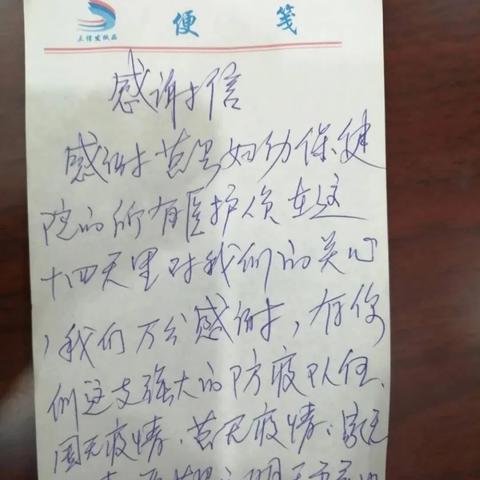 便笺
感谢信
感谢莒县妇幼保健
院的所有医护人员在这
十四天里对我们的关心
,我们万分感谢,有你
们这支强大的防疫队伍、
国无疫情、莒无疫情、家无